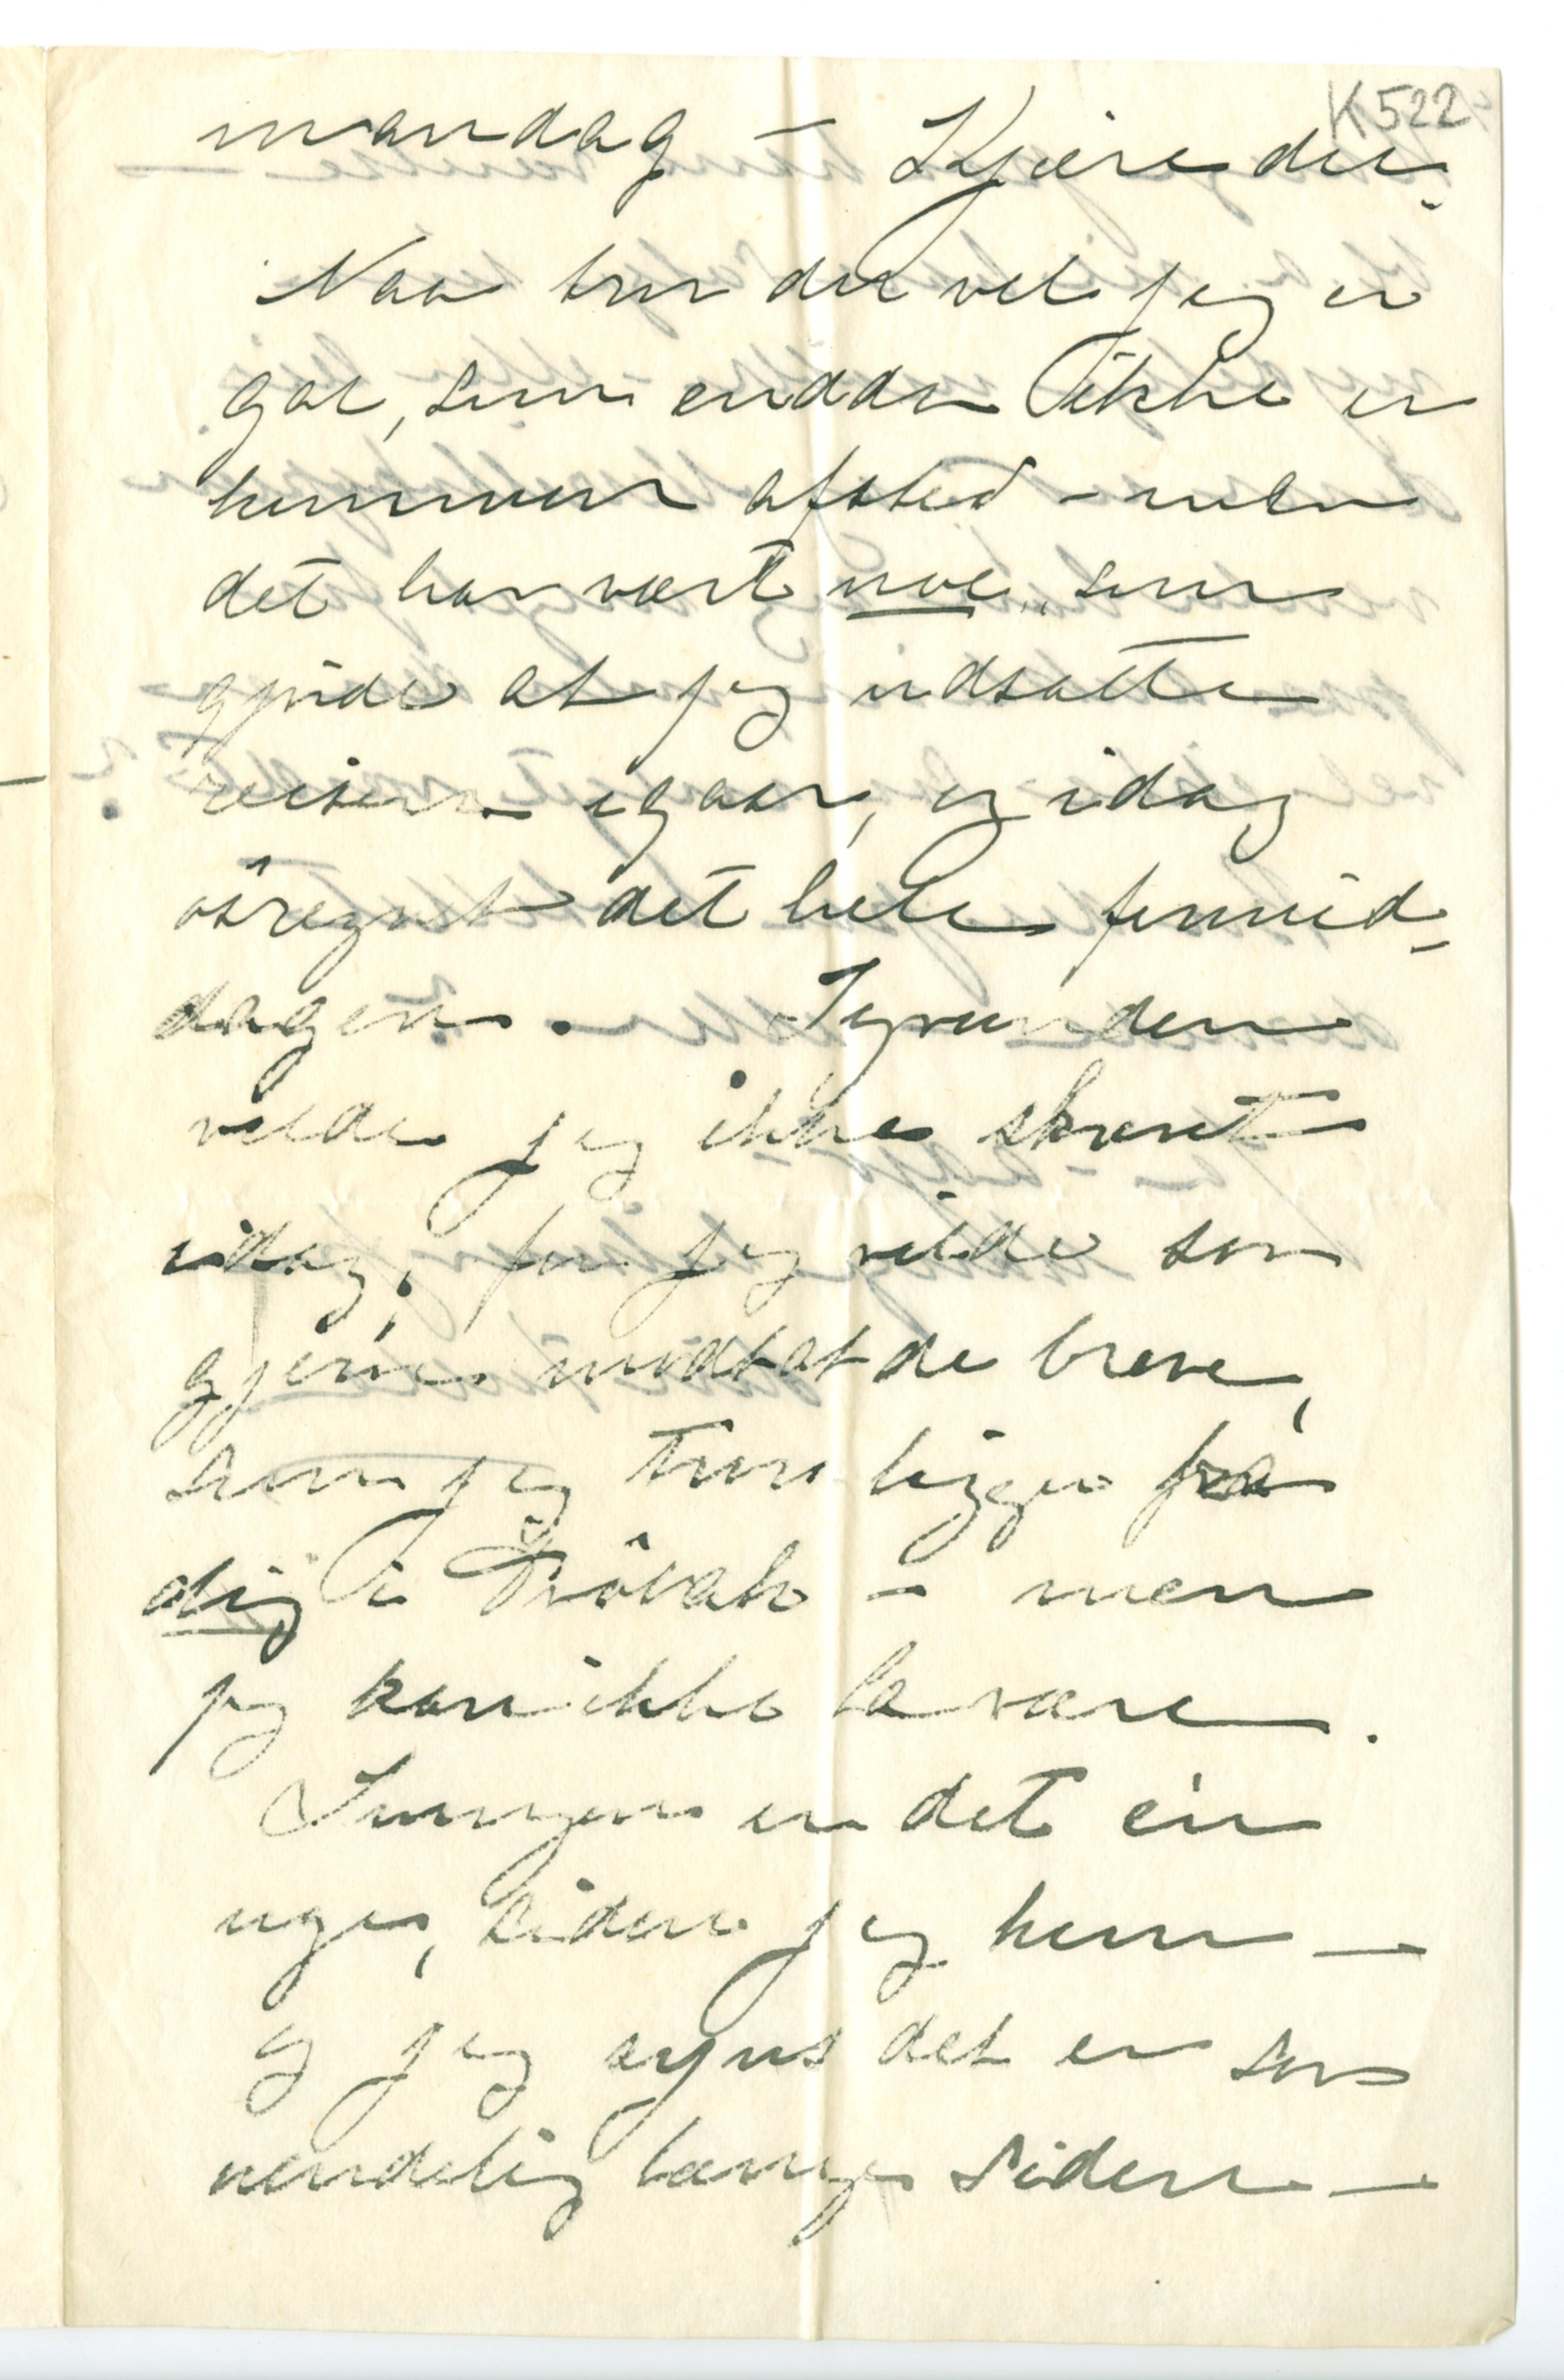 K 522
mandag – Kjære du –
Naa tror du vel jeg er
gal, som endda ikke er
kommen afsted – men
det har vært noe, som
gjorde at jeg udsatte
reisen igaar, og idag
øsregnet det hele formid-
dagen. Igrunden
vilde jeg ikke skrevet
idag; for jeg vilde saa
gjerne modtat de breve,
som jeg tror ligger fra
dig i Drøbak – men
jeg kan ikke la være.
Imorgen er det én
uge, siden jeg kom –
og jeg syns det er saa
uendelig længe siden –